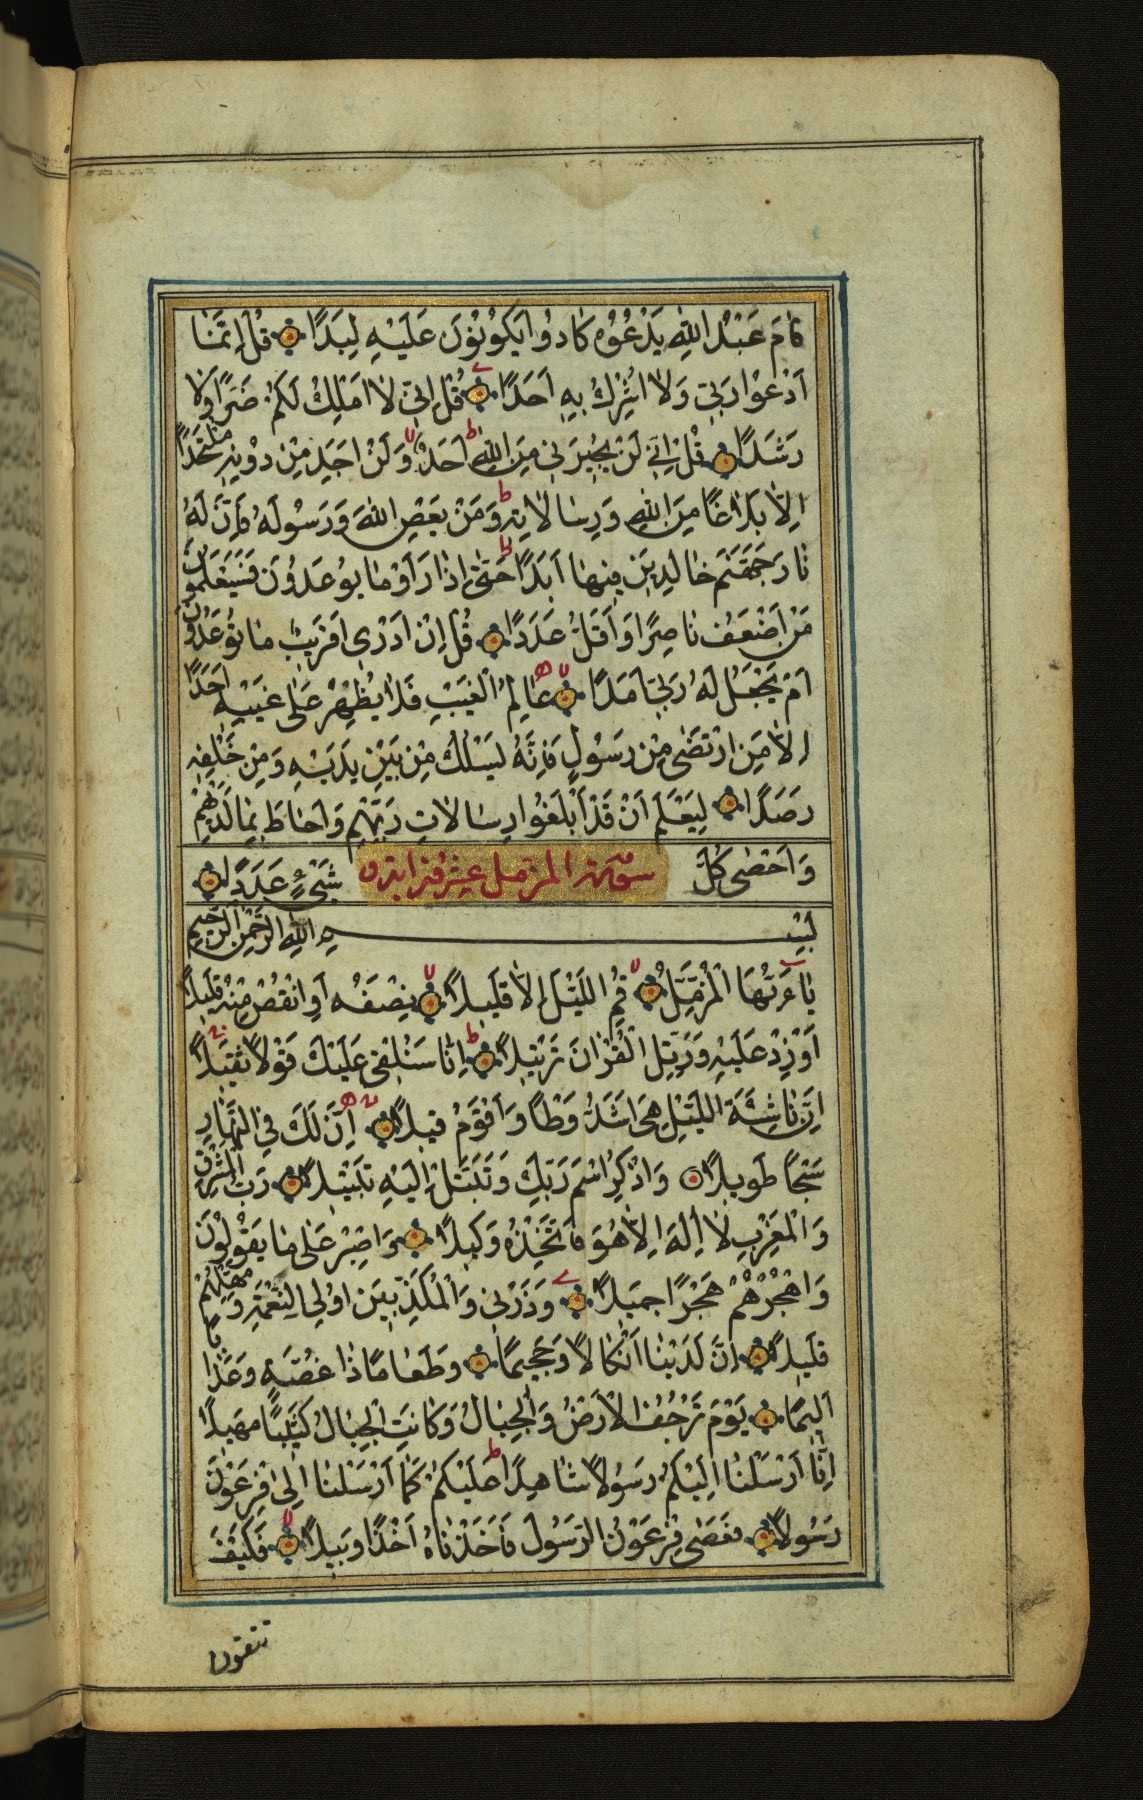 قامَ عَبْدُ اللهِ يَدْعُوهُ كادُوا يَكُونُونَ عَلَيْهِ لِبَدًا قُلْ إِنَّمَا
اَدْعُوا رَبّي وَلا اُشْرِكُ بِهِ اَحَدًا قُلْ اِنّي لا اَمْلِكُ لَكُمْ ضَرًّا وَلا
رَشَدًا قُلْ اِنّي لَنْ يُجيرَني مِنَ اللهِ اَحَدٌ وَلَنْ اَجِدَ مِنْ دُونِهِ مُلْتَحَدًا
اِلّا بَلاغًا مِنَ اللهِ وَرِسالاتِهِ وَمَنْ يَعْصِ اللهَ وَرَسُولَهُ فَاِنَّ لَهُ
نارَ جَهَنَّمَ خالِدينَ فيها اَبَدًا حَتّى اِذا رَاَوْا ما يُوعَدُونَ فَسَيَعْلَمُونَ
مَنْ اَضْعَفُ ناصِرًا وَاَقَلُّ عَدَدًا قُلْ اِنْ اَدْري اَقَريبٌ ما تُوعَدُونَ
اَمْ يَجْعَلُ لَهُ رَبّي اَمَدًا عالِمُ الْغَيْبِ فَلا يُظْهِرُ عَلى غَيْبِهِ اَحَدًا
اِلّا مَنِ ارْتَضى مِنْ رَسُولٍ فَاِنَّهُ يَسْلُكُ مِنْ بَيْنِ يَدَيْهِ وَمِنْ خَلْفِهِ
رَصَدًا لِيَعْلَمَ اَنْ قَدْ اَبْلَغُوا رِسالاتِ رَبِّهِمْ وَاَحاطَ بِما لَدَيْهِمْ
وَاَحْصى كُلَّ سورة المزمل عشرون اية شَيْءٍ عَدَدًا
بِسْمِ اللهِ الرَّحْمنِ الرَّحيمِ
يا اَيُّهَا الْمُزَّمِّلُ قُمِ اللَّيْلَ اِلّا قَليلًا نِصْفَهُ اَوِ انْقُصْ مِنْهُ قَليلًا
اَوْ زِدْ عَلَيْهِ وَرَتِّلِ الْقُرْانَ تَرْتيلًا اِنّا سَنُلْقي عَلَيْكَ قَوْلًا ثَقيلًا
اِنَّ ناشِئَةَ اللَّيْلِ هِيَ اَشَدُّ وَطْاً وَاَقْوَمُ قيلًا اِنَّ لَكَ فِي النَّهارِ
سَبْحًا طَويلًا وَاذْكُرِ اسْمَ رَبِّكَ وَتَبَتَّلْ اِلَيْهِ تَبْتيلًا رَبُّ الْمَشْرِقِ
وَالْمَغْرِبِ لا اِلهَ اِلّا هُوَ فَاتَّخِذْهُ وَكيلًا وَاصْبِرْ عَلى ما يَقُولُونَ
وَاهْجُرْهُمْ هَجْرًا جَميلًا وَذَرْني وَالْمُكَذِّبينَ اُولِي النَّعْمَةِ وَمَهِّلْهُمْ
قَليلًا اِنَّ لَدَيْنا اَنْكالًا وَجَحيمًا وَطَعامًا ذا غُصَّةٍ وَعَذابًا
اَليمًا يَوْمَ تَرْجُفُ الْاَرْضُ وَالْجِبالُ وَكانَتِ الْجِبالُ كَثيبًا مَهيلًا
اِنّا اَرْسَلْنا اِلَيْكُمْ رَسُولًا شاهِدًا عَلَيْكُمْ كَما اَرْسَلْنا اِلى فِرْعَوْنَ
رَسُولًا فَعَصى فِرْعَوْنُ الرَّسُولَ فَاَخَذْناهُ اَخْذًا وَبيلًا فَكَيْفَ
تتقون